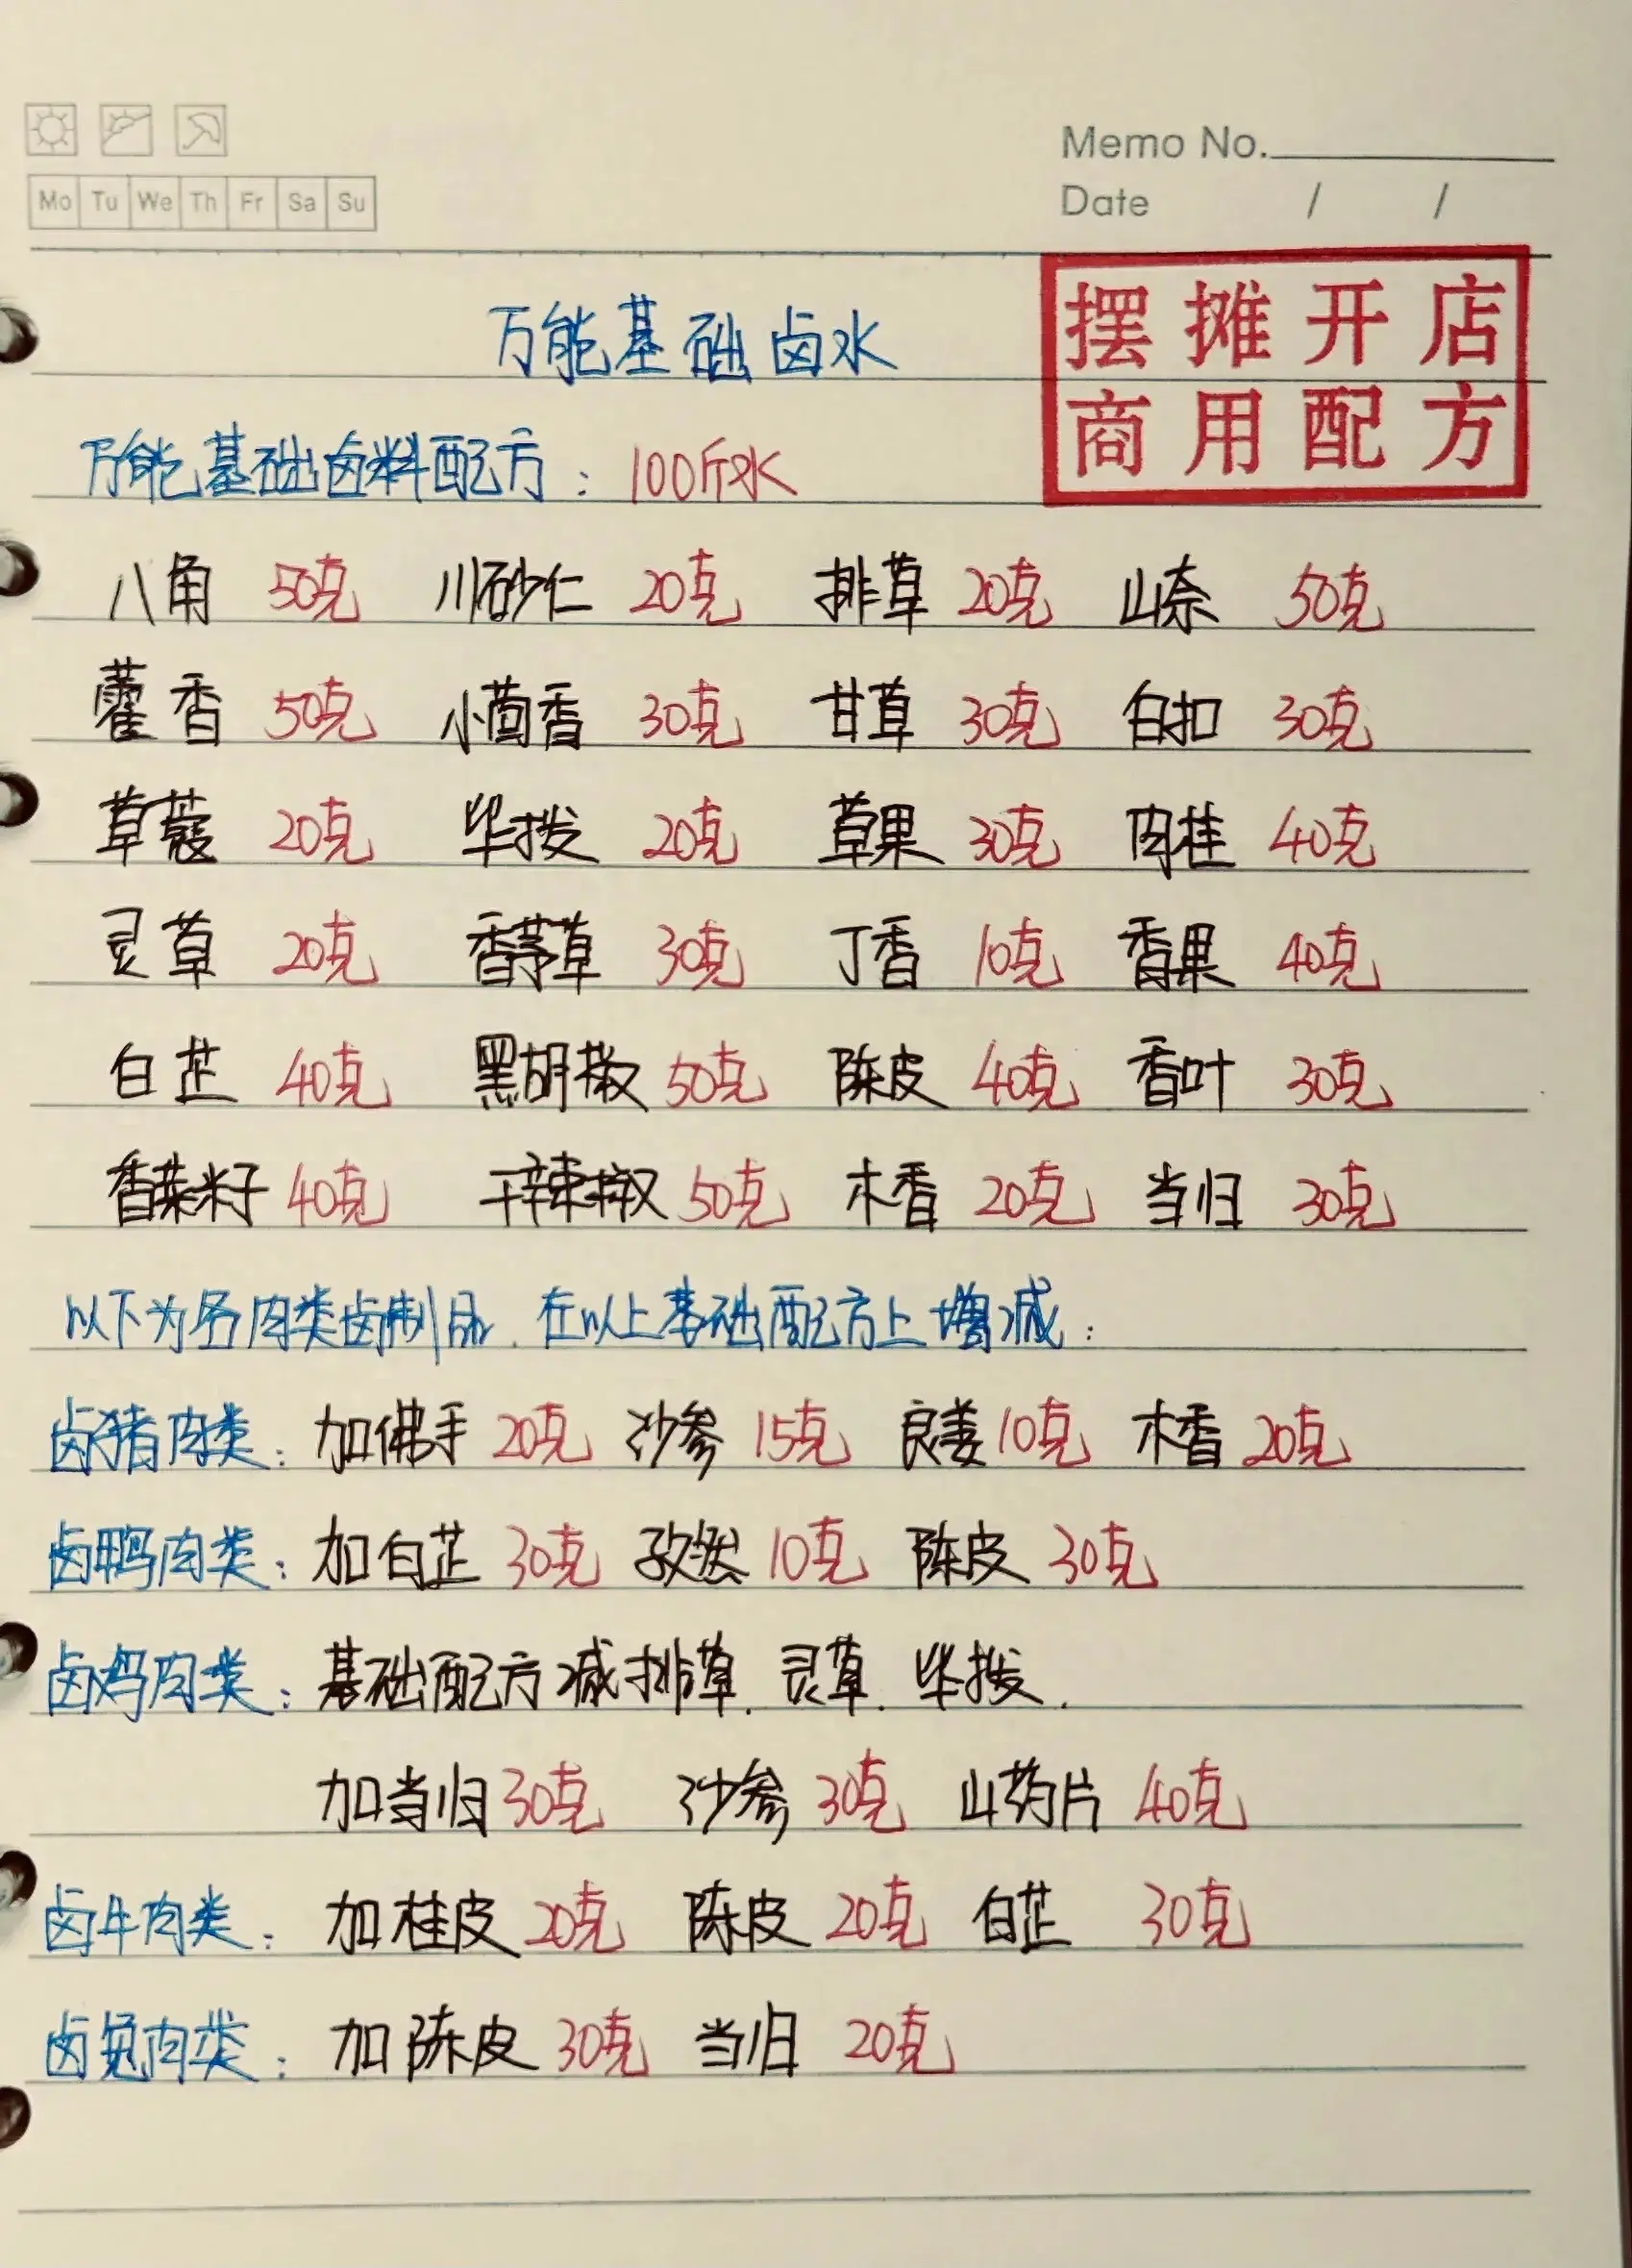 Memo No.
Mo Tu We Th Fr Sa Su
Date / /
摆摊开店
商用配方
万能基础卤水
万能基础卤料配方：100斤水
八角 50克 川砂仁 20克 排草 20克 山奈 50克
藿香 50克 小茴香 30克 甘草 30克 白扣 30克
草蔻 20克 毕拨 20克 草果 30克 肉桂 40克
灵草 20克 香茅草 30克 丁香 10克 香果 40克
白芷 40克 黑胡椒 50克 陈皮 40克 香叶 30克
香菜籽 40克 干辣椒 50克 木香 20克 当归 30克
以下为各肉类卤制品、在以上基础配方上增减：
卤猪肉类：加佛手 20克 沙参 15克 良姜 10克 木香 20克
卤鸭肉类：加白芷 30克 孜然 10克 陈皮 30克
卤鸡肉类：基础配方减排草、灵草、毕拨、
加当归 30克 沙参 30克 山药片 40克
卤牛肉类：加桂皮 20克 陈皮 20克 白芷 30克
卤兔肉类：加陈皮 30克 当归 20克